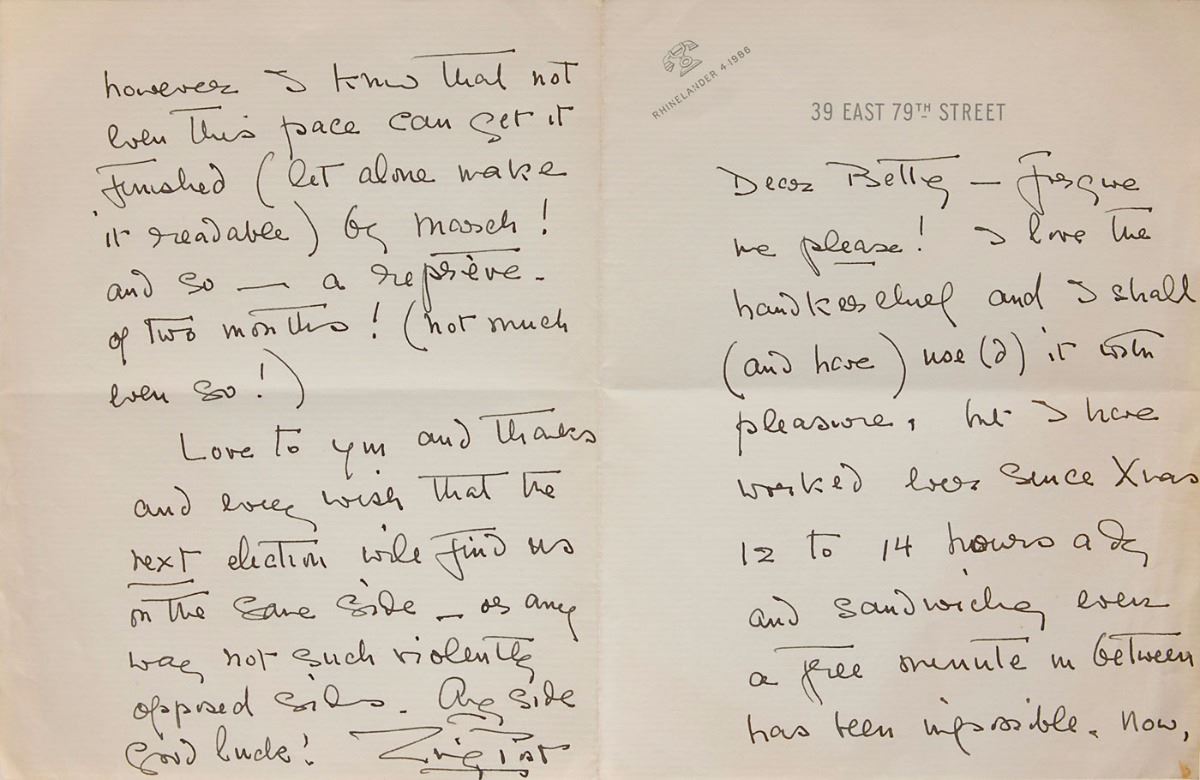 RHINELANDER 4-1986
39 EAST 79TH STREET
Dear Betty — Forgive
me please! I love the
handkerchief and I shall
(and have) use(d) it with
pleasure, but I have
worked ever since Xmas
12 to 14 hours a day
and sandwiching even
a free minute in between
has been impossible. Now,
however I know that not
even this pace can get it
finished (let alone make
it readable) by March!
and so — a reprieve -
of two months! (not much
even so!)
Love to you and thanks
and every wish that the
next election will find us
on the same side — or any
way not such violently
opposed sides. Any side
Good luck!